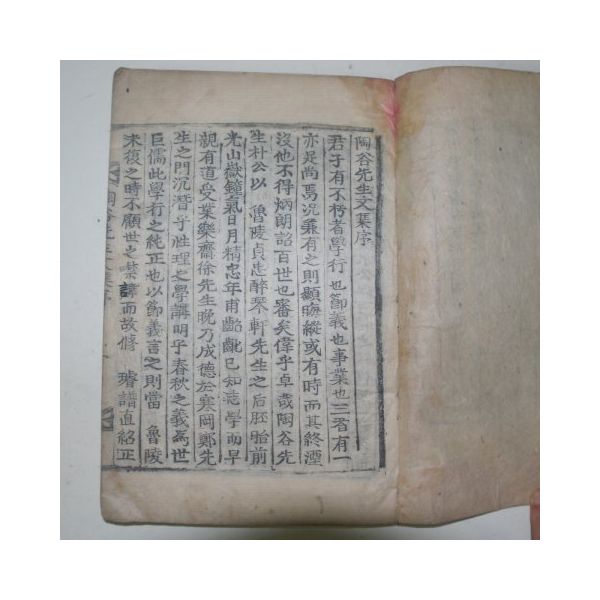 陶谷先生文集序
君子有不朽者學行也節義也事業也三者有一
亦足尙焉況兼有之則顯晦縱或有時而其終湮
沒他不得炳朗詔百世也審矣偉乎卓哉陶谷先
生朴公以 魯陵貞忠醉琴軒先生之后胚胎前
光山嶽鐘氣日月精忠年甫齠齔已知志學而早
親有道受業樂齋徐先生晚乃成德於寒岡鄭先
生之門沉潛乎性理之學講明乎春秋之義爲世
巨儒此學行之純正也以節義言之則當 魯陵
未復之時不顧世之禁諱而故修 璿譜直紹正